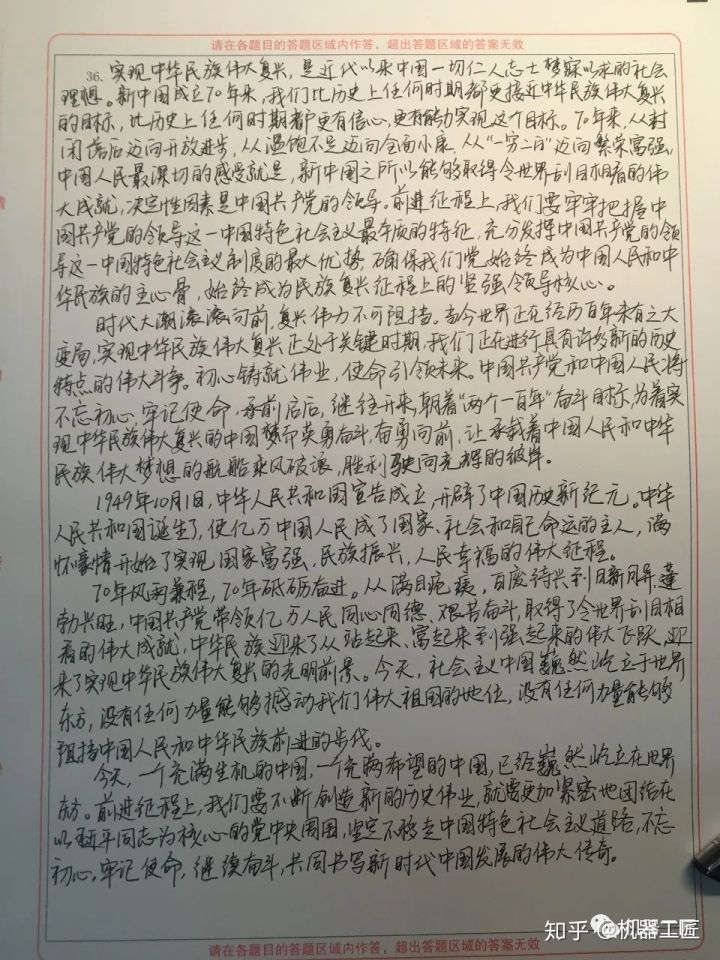 请在各题目的答题区域内作答，超出答题区域的答案无效
36. 实现中华民族伟大复兴，是近代以来中国一切仁人志士梦寐以求的社会
理想。新中国成立70年来，我们比历史上任何时期都更接近中华民族伟大复兴
的目标，比历史上任何时期都更有信心，更有能力实现这个目标。70年来，从封
闭落后迈向开放进步，从温饱不足迈向全面小康，从“一穷二白”迈向繁荣富强，
中国人民最深切的感受就是，新中国之所以能够取得令世界刮目相看的伟
大成就，决定性因素是中国共产党的领导。前进征程上，我们要牢牢把握中
国共产党的领导这一中国特色社会主义最本质的特征，充分发挥中国共产党的领
导这一中国特色社会主义制度的最大优势，确保我们党始终成为中国人民和中
华民族的主心骨，始终成为民族复兴征程上的坚强领导核心。
时代大潮滚滚向前，复兴伟力不可阻挡。当今世界正在经历百年未有之大
变局，实现中华民族伟大复兴正处于关键时期，我们正在进行具有许多新的历史
特点的伟大斗争。初心铸就伟业，使命引领未来。中国共产党和中国人民将
不忘初心、牢记使命，承前启后，继往开来，朝着“两个一百年”奋斗目标，为着实
现中华民族伟大复兴的中国梦而英勇奋斗，奋勇向前，让承载着中国人民和中华
民族伟大梦想的航船乘风破浪，胜利驶向光辉的彼岸。
1949年10月1日，中华人民共和国宣告成立，开辟了中国历史新纪元。中华
人民共和国诞生了，使亿万中国人民成了国家、社会和自己命运的主人，满
怀豪情开始了实现国家富强、民族振兴、人民幸福的伟大征程。
70年风雨兼程，70年砥砺奋进。从满目疮痍，百废待兴到日新月异、蓬
勃兴旺，中国共产党带领亿万人民同心同德、艰苦奋斗，取得了令世界刮目相
看的伟大成就，中华民族迎来了从站起来、富起来到强起来的伟大飞跃，迎
来了实现中华民族伟大复兴的光明前景。今天，社会主义中国巍然屹立于世界
东方，没有任何力量能够撼动我们伟大祖国的地位，没有任何力量能够
阻挡中国人民和中华民族前进的步伐。
今天，一个充满生机的中国，一个充满希望的中国，已经巍然屹立在世界
东方。前进征程上，我们要不断创造新的历史伟业，就要更加紧密地团结在
以习近平同志为核心的党中央周围，坚定不移走中国特色社会主义道路，不忘
初心，牢记使命，继续奋斗，共同书写新时代中国发展的伟大传奇。
请在各题目的答题区域内作答，超出答题区域的答案无效
知乎 @机器工匠